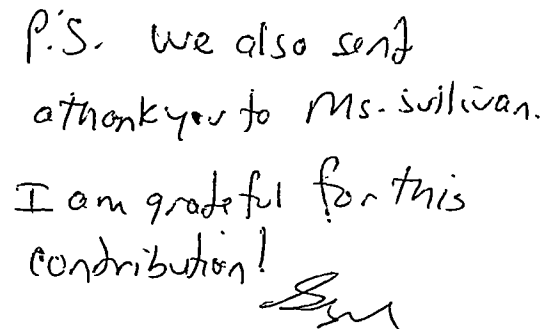 P.S. we also sent
a thank you to Ms. Sullivan.
I am grateful for this
contribution!